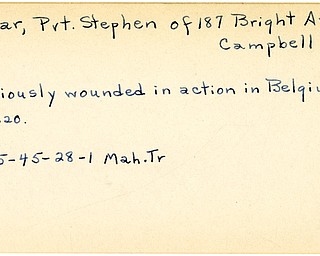 ar, Pvt. Stephen of 187 Bright A
Campbell
iously wounded in action in Belgiu
20.
5-45-28-1 Mah. Tr